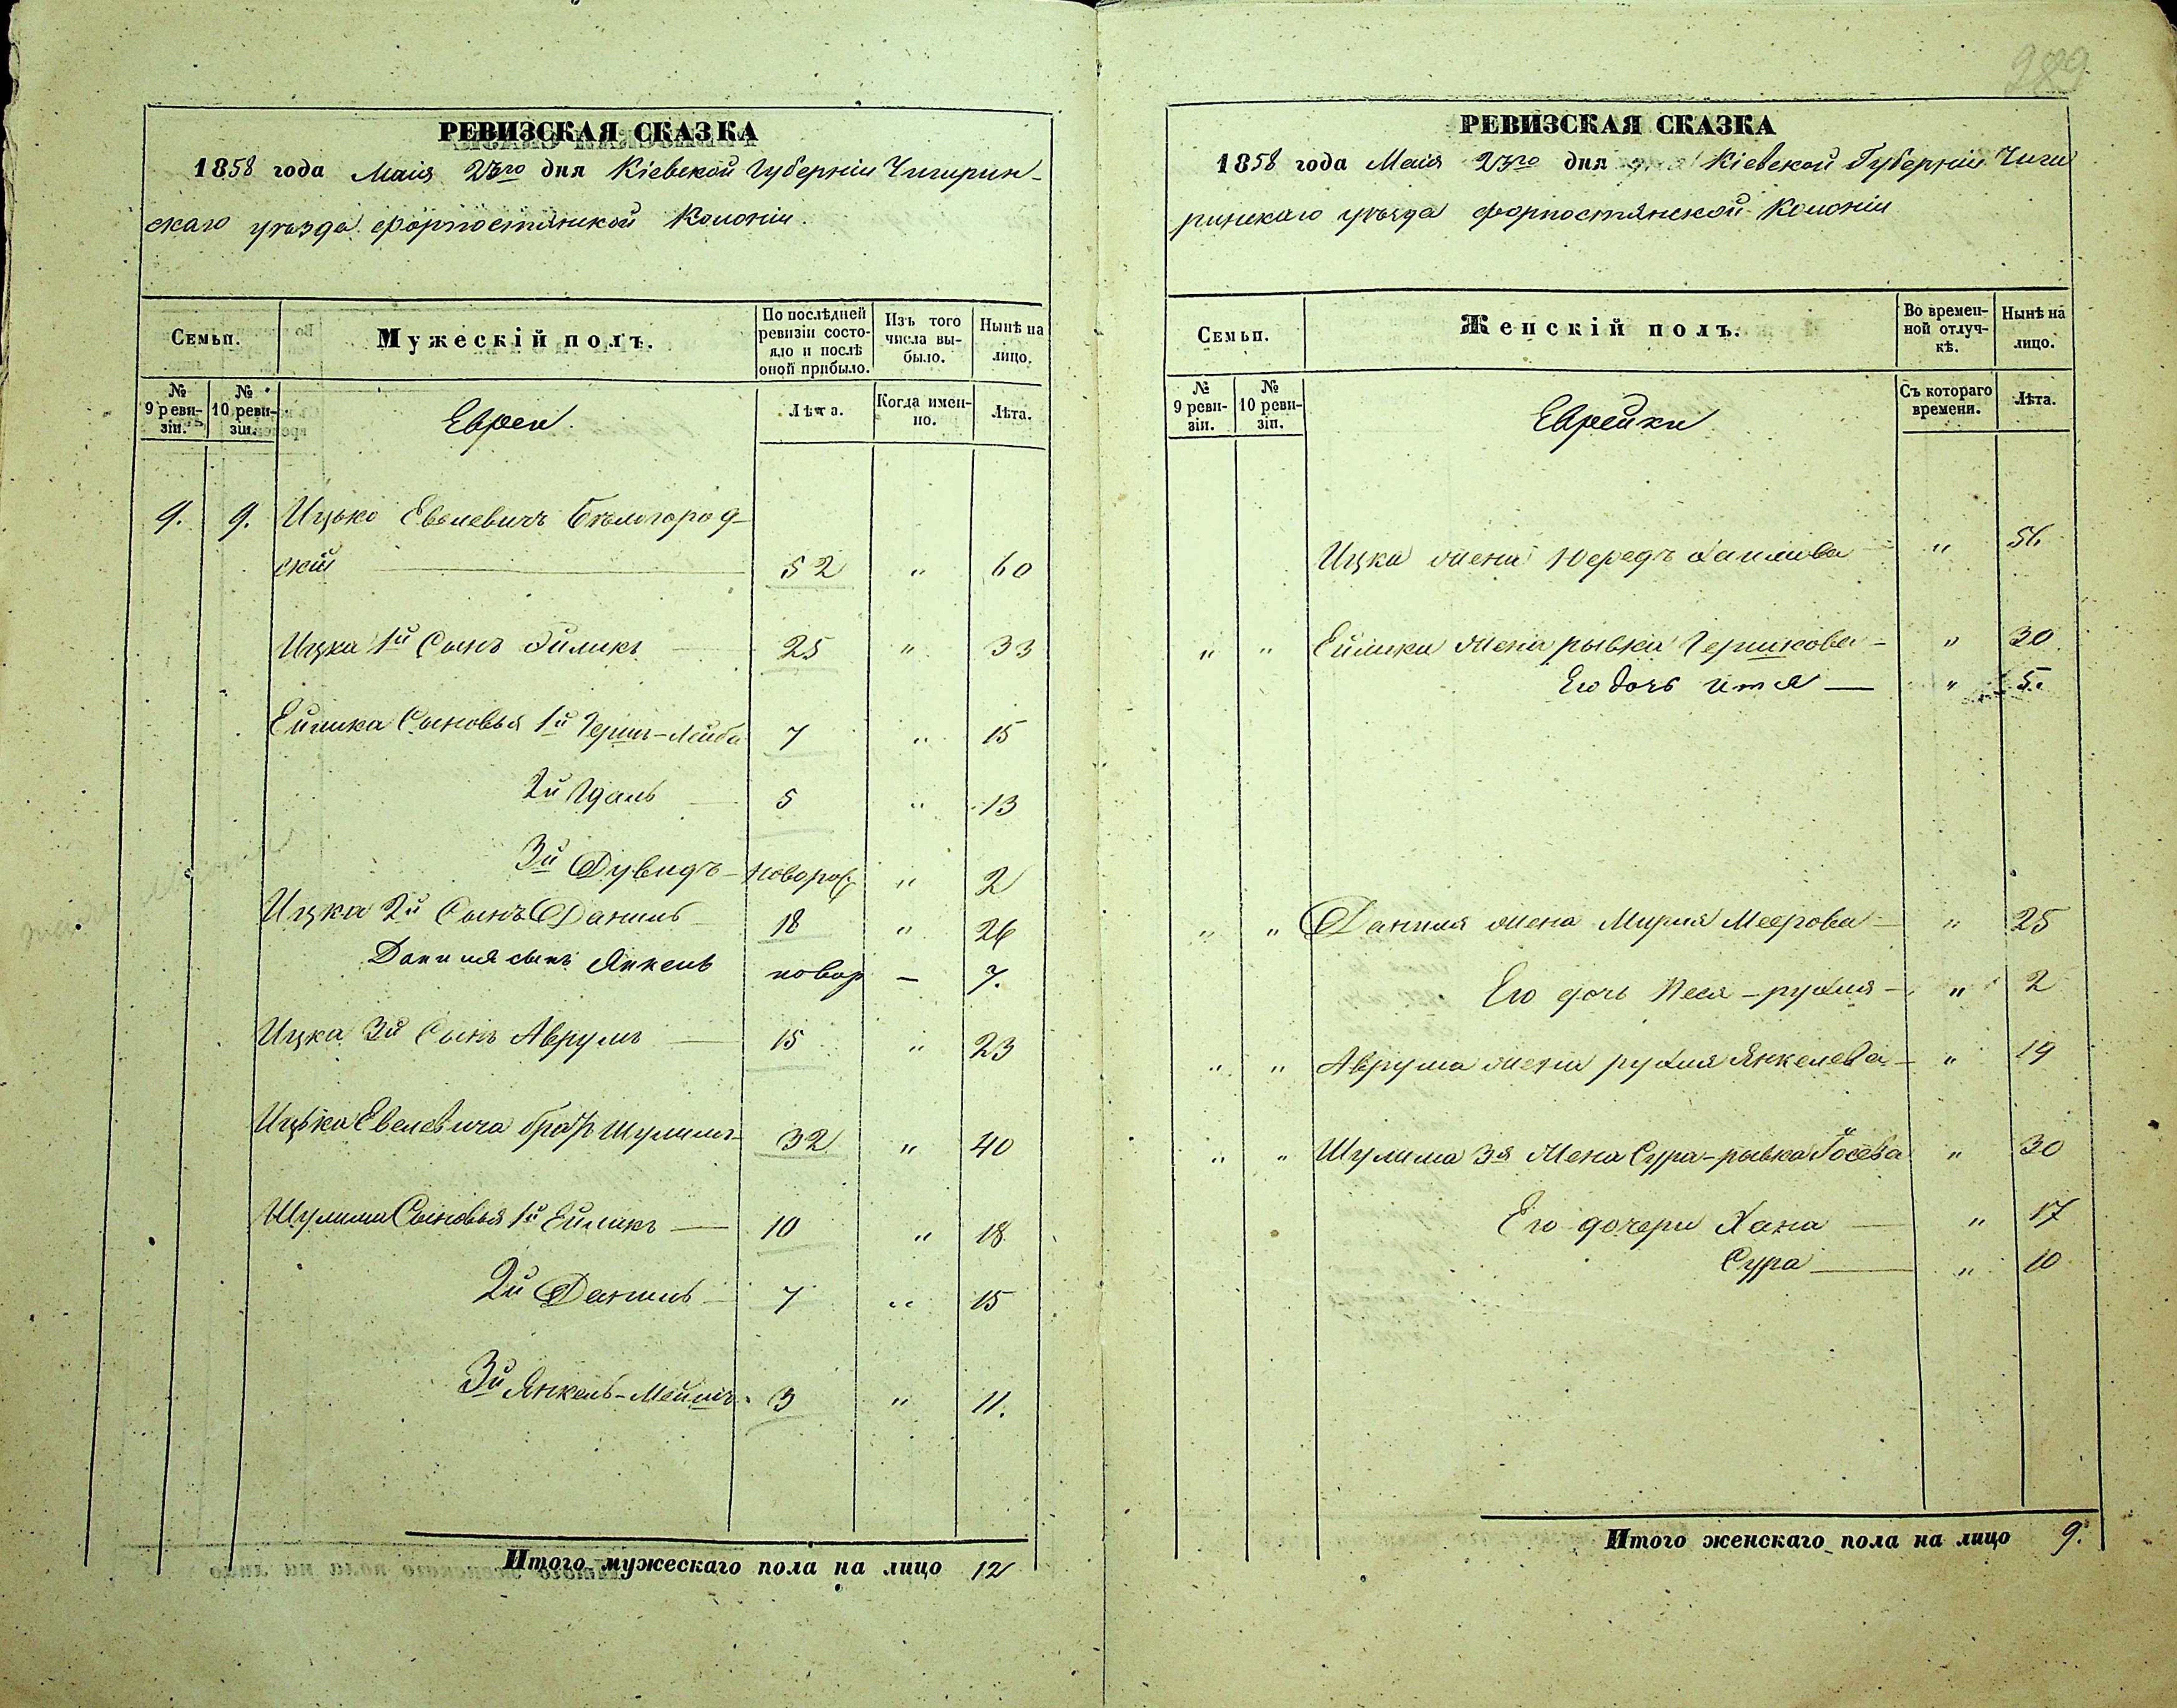 РЕВИЗСКАЯ СКАЗКА
1858 года Маія 23го дня Кіевской Губерніи Чигирин-
скаго уѣзда форпостянской Колоніи
Семьи.
Мужескій полъ.
По послѣдней ревизіи состояло и послѣ оной прибыло.
Изъ того числа выбыло.
Нынѣ на лицо.
№ 9 ревизіи.
№ 10 ревизіи.
Евреи.
Лѣта.
Когда именно.
Лѣта.
9. 9. Ицько Евелевичъ Бѣлогород-
скій 52 " 60
Ицка 1й Сынъ Эйликъ 25 " 33
Ейлика Сыновья 1й Гершъ-Лейба 7 " 15
2й Гдаль 5 " 13
3й Дувидъ - новорож " 2
Ицка 2й Сынъ Даниль 18 " 26
Даниля сынъ Янкель новор — 7.
Ицка 3й Сынъ Аврумъ 15 " 23
Ицька Евелевича братъ Шулимъ 32 " 40
Шулима Сыновья 1й Ейликъ 10 " 18
2й Даниль 7 " 15
3й Янкель-Мейшъ 3 " 11.
Итого мужескаго пола на лицо 12
289
РЕВИЗСКАЯ СКАЗКА
1858 года Маія 23го дня Кіевской Губерніи Чиги
ринскаго уѣзда форпостянской Колоніи
Семьи.
Женскій полъ.
Во временной отлучкѣ.
Нынѣ на лицо.
№ 9 ревизіи.
№ 10 ревизіи.
Еврейки
Съ котораго времени.
Лѣта.
Ицка жена " 56
" " Ейлика жена рывка Гершкова - " 30.
Его дочь Итя — " 5.
" " Даниля жена Мирля Меерова - " 25
Его дочь Песя-рухля - " 2
" " Аврума жена рухля Янкелева - " 19
" " Шулима 3я Жена Сура-рывка Іосева " 30
Его дочери Хана " 17
Сура " 10
Итого женскаго пола на лицо 9.